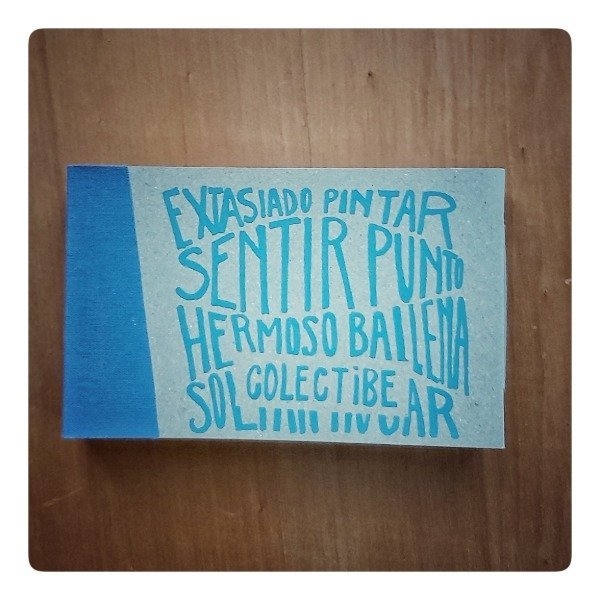 EXTASIADO PINTAR
SENTIR PUNTO
HERMOSO BALLENA
COLECTiBE
SOL